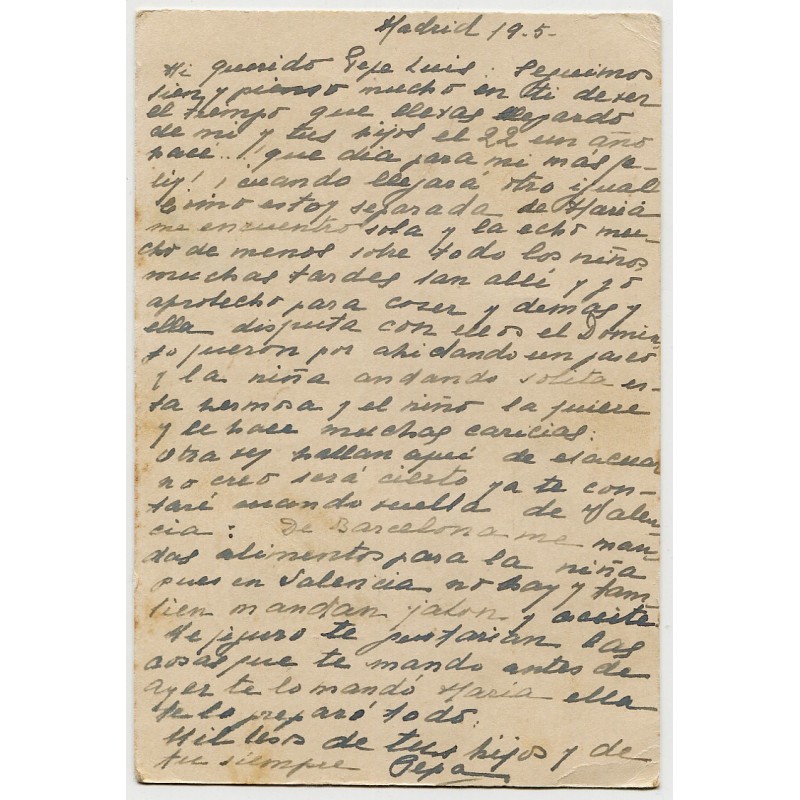 Madrid 19.5-
Mi querido Pepe Luis: Seguimos
bien y pienso mucho en ti de ver
el tiempo que llevas alejado
de mi y tus hijos el 22 un año
hace..! que dia para mi más fe-
liz! ¡cuando llegará otro igual
Como estoy separada de Mariá
me encuentro sola y la echo mu-
cho de menos sobre todo los niños
muchas tardes van allí y yo
aprobecho para coser y demas y
ella disfruta con ellos el Domin-
go fueron por ahi dando un paseo
y la niña andando solita es-
ta hermosa y el niño la quiere
y le hace muchas caricias:
Otra vez hablan aqui de esacuar
no creo será cierto ya te con-
taré cuando vuelva de Valen-
cia: De Barcelona me man-
das alimentos para la niña
pues en Valencia no hay y tam-
bien mandan jabon y aceite
Me figuro te gustarian las
cosas que te mando antes de
ayer te lo mandó Maria ella
te lo preparó todo:
Mil besos de tus hijos y de
tu siempre Pepa